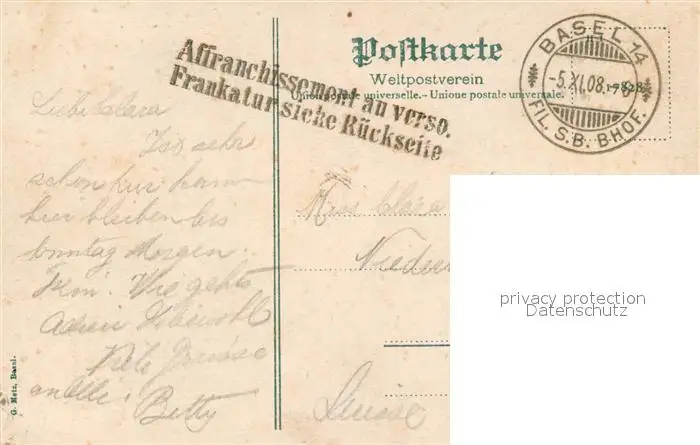 Postkarte
Weltpostverein
Union postale universelle. - Unione postale universale.
Affranchissement au verso.
Frankatur siehe Rückseite
BASEL 14
-5.XI.08.
FIL. S.B. BHOF.
Liebe Clara
Ist sehr
schön hier
hier bleiben bis
Sonntag Morgen.
Wie gehts
Viele Grüsse
an Alle.
Betty
Miss Clara
Nieder
Suisse
privacy protection
Datenschutz
G. Metz, Basel.